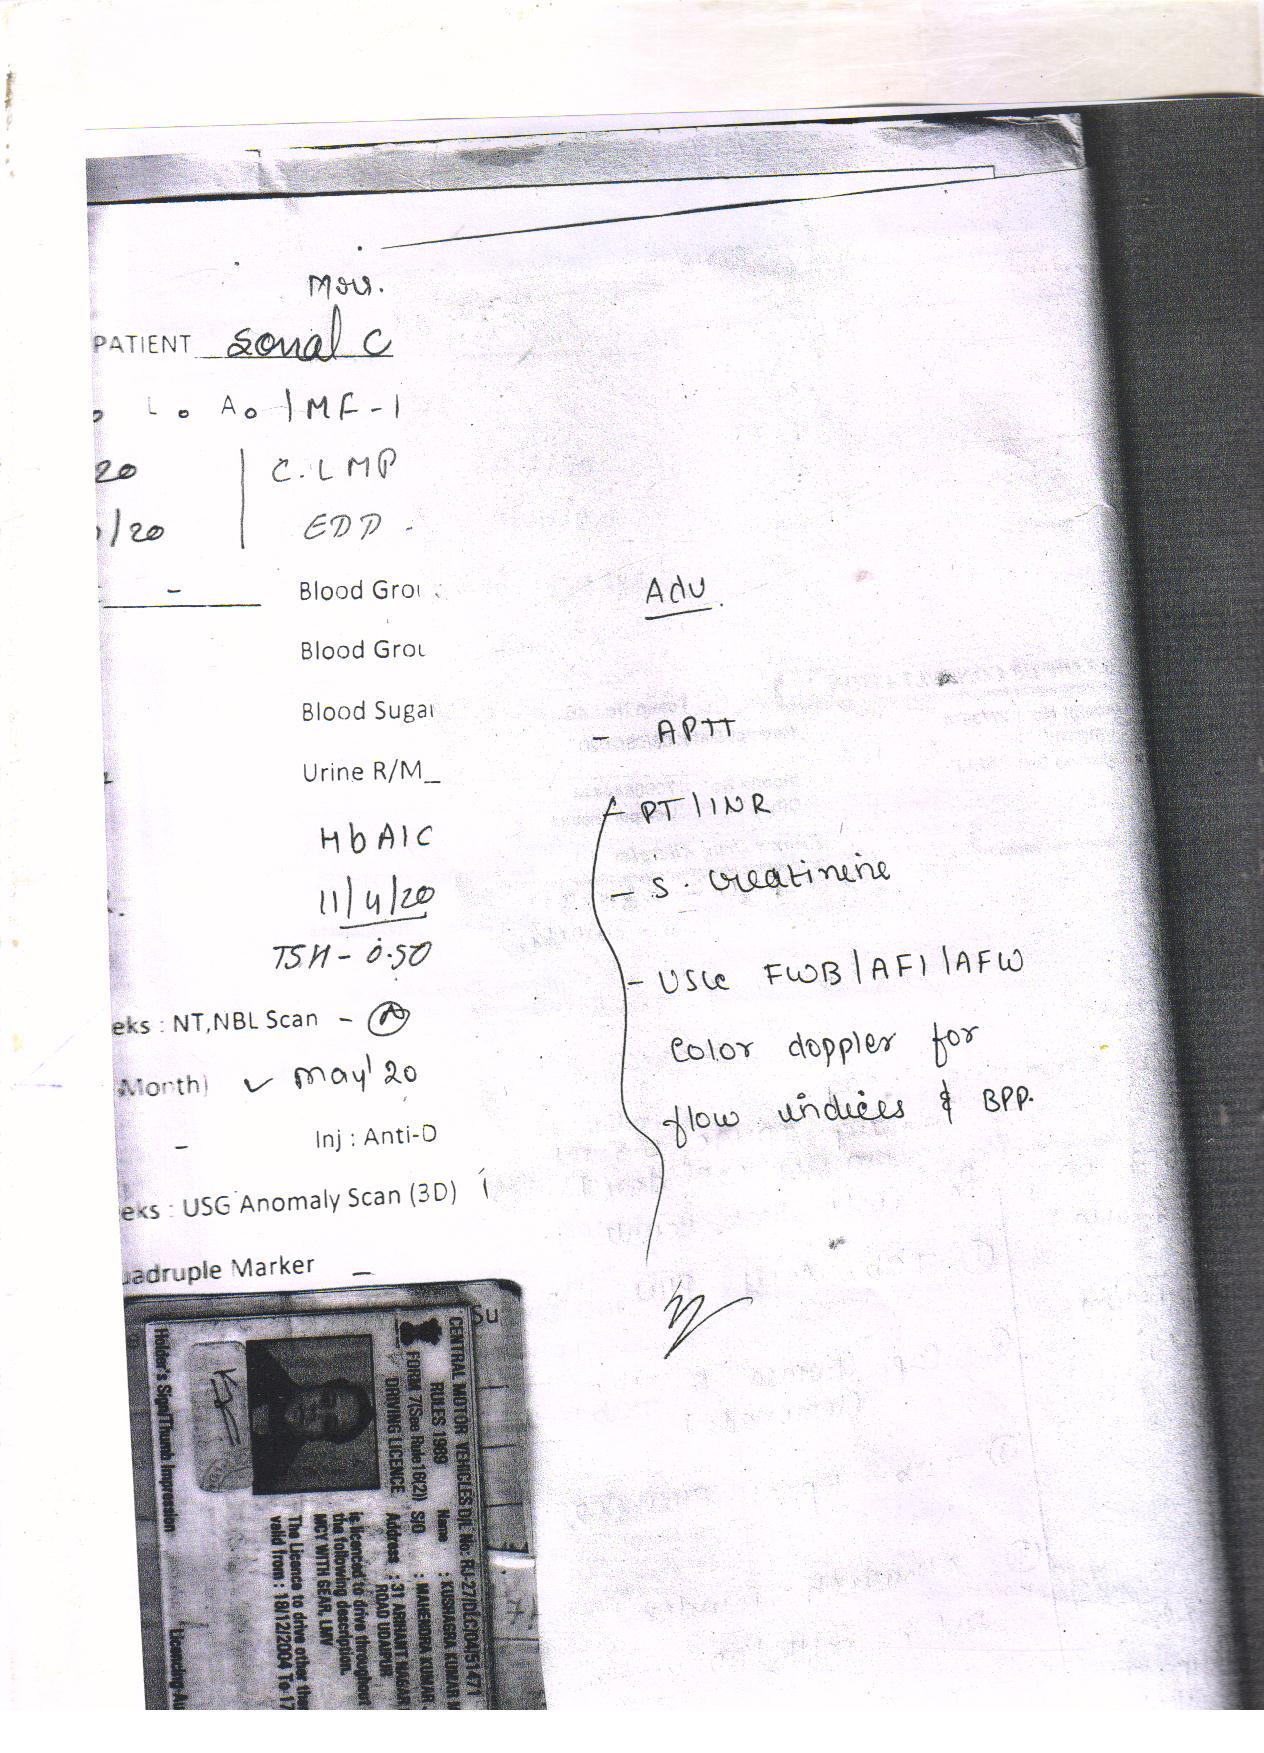 Mrs.
PATIENT sonal C
L o A o | MF - 1
20 | C.LMP
/20 | EDD -
- Blood Grou
Blood Grou
Blood Sugar
Urine R/M_
HbA1C
11/4/20
TSH - 0.50
eks : NT,NBL Scan - A
Month) ✓ May'20
- Inj : Anti-D
eks : USG Anomaly Scan (3D)
uadruple Marker -
Adv.
- APTT
- PT/INR
- S. Creatinine
- USG FWB/AFI/AFW
Color doppler for
flow indices & BPP.
Su
CENTRAL MOTOR VEHICLES D/L No: RJ-27/DLC/04/51471
RULES 1989 Name : KUSHAGRA KUMAR
FORM 7(See Rule16(2)) S/O : MAHENDRA KUMAR
DRIVING LICENCE Address : 31 ARIHANT NAGAR
ROAD UDAIPUR
is licenced to drive throughout
the following description.
MCY WITH GEAR, LMV
The Licence to drive other tha
valid from : 18/12/2004 To 17
Holder's Sign/Thumb Impression
Licencing Au